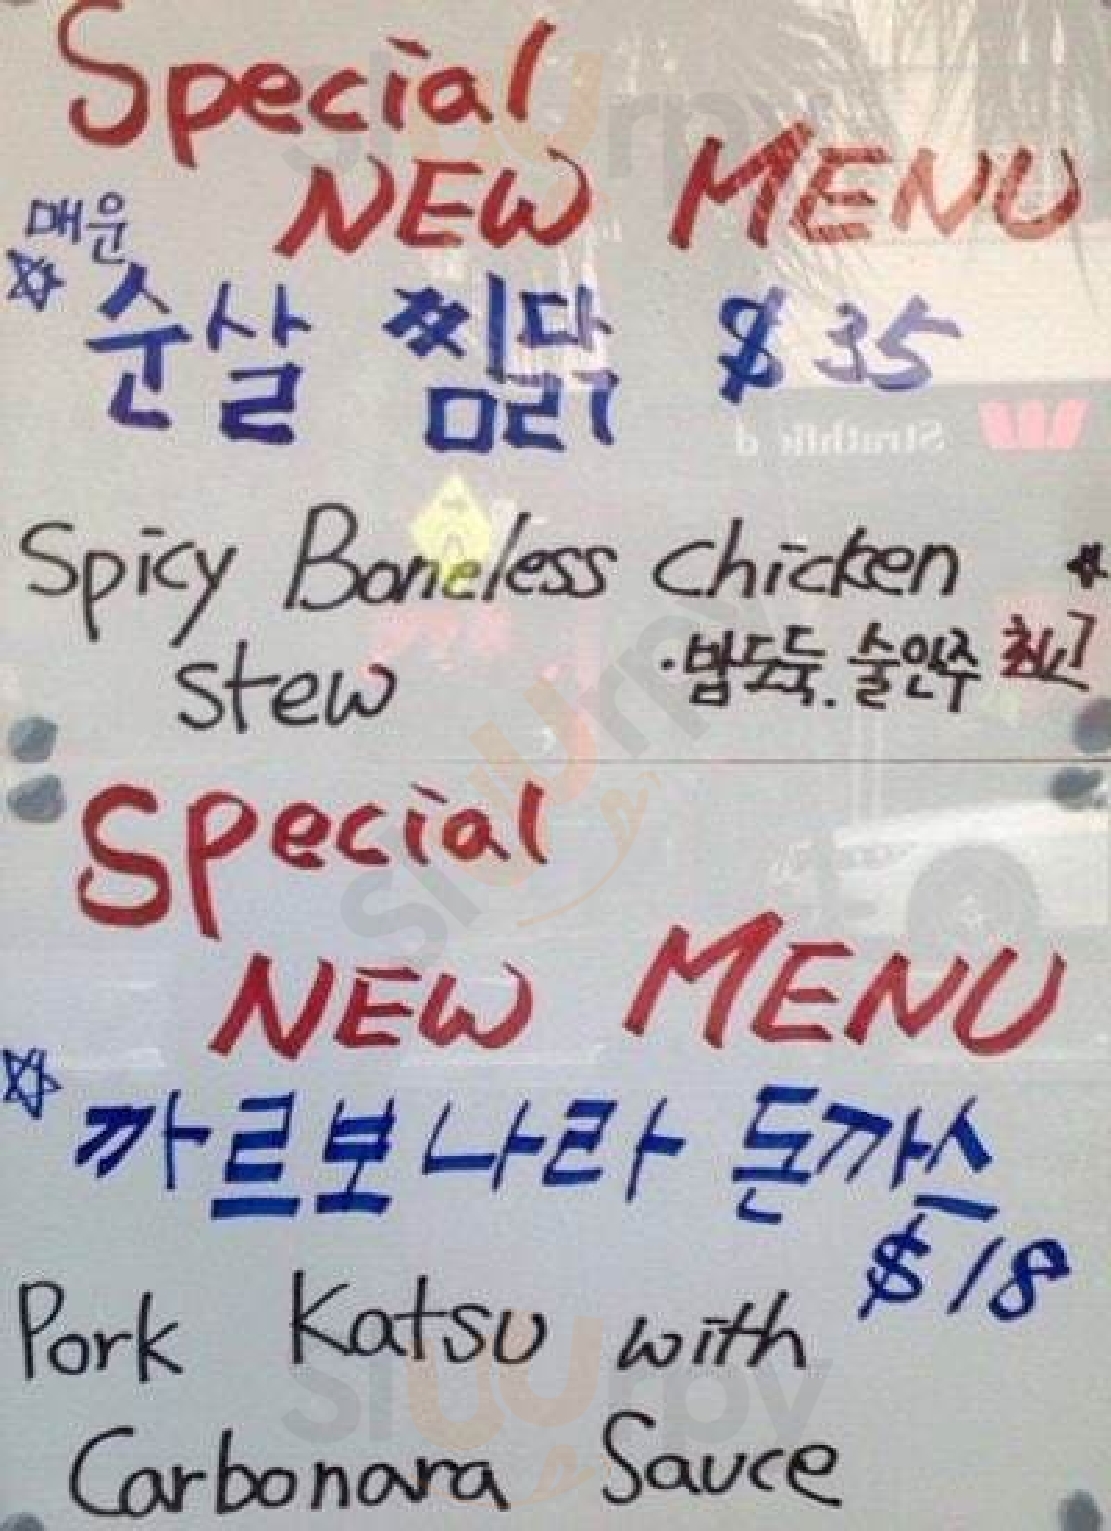 Special
NEW MENU
매운
☆ 순살 찜닭 $35
Spicy Boneless Chicken
stew
★
·밥도둑. 술안주 최고
Strathfield
Special
NEW MENU
☆ 까르보나라 돈까스
$18
Pork Katsu with
Carbonara Sauce
Sluurpy
Sluurpy
Sluurpy